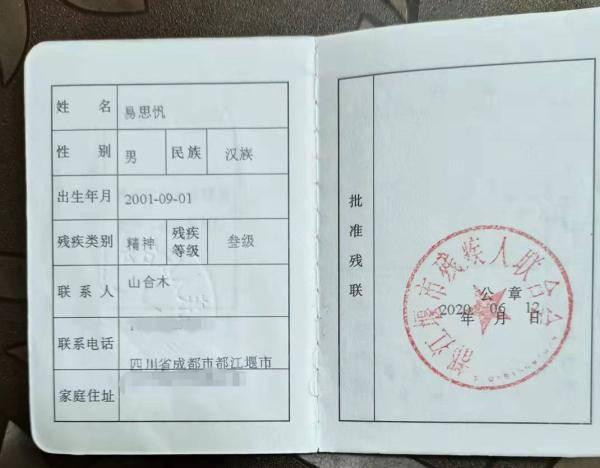 姓 名 易思忛
性 别 男 民族 汉族
出生年月 2001-09-01
残疾类别 精神 残疾等级 叁级
联 系 人 山合木
联系电话
四川省成都市都江堰市
家庭住址
批准残联
都江堰市残疾人联合会
公 章
2020 06 12
年 月 日